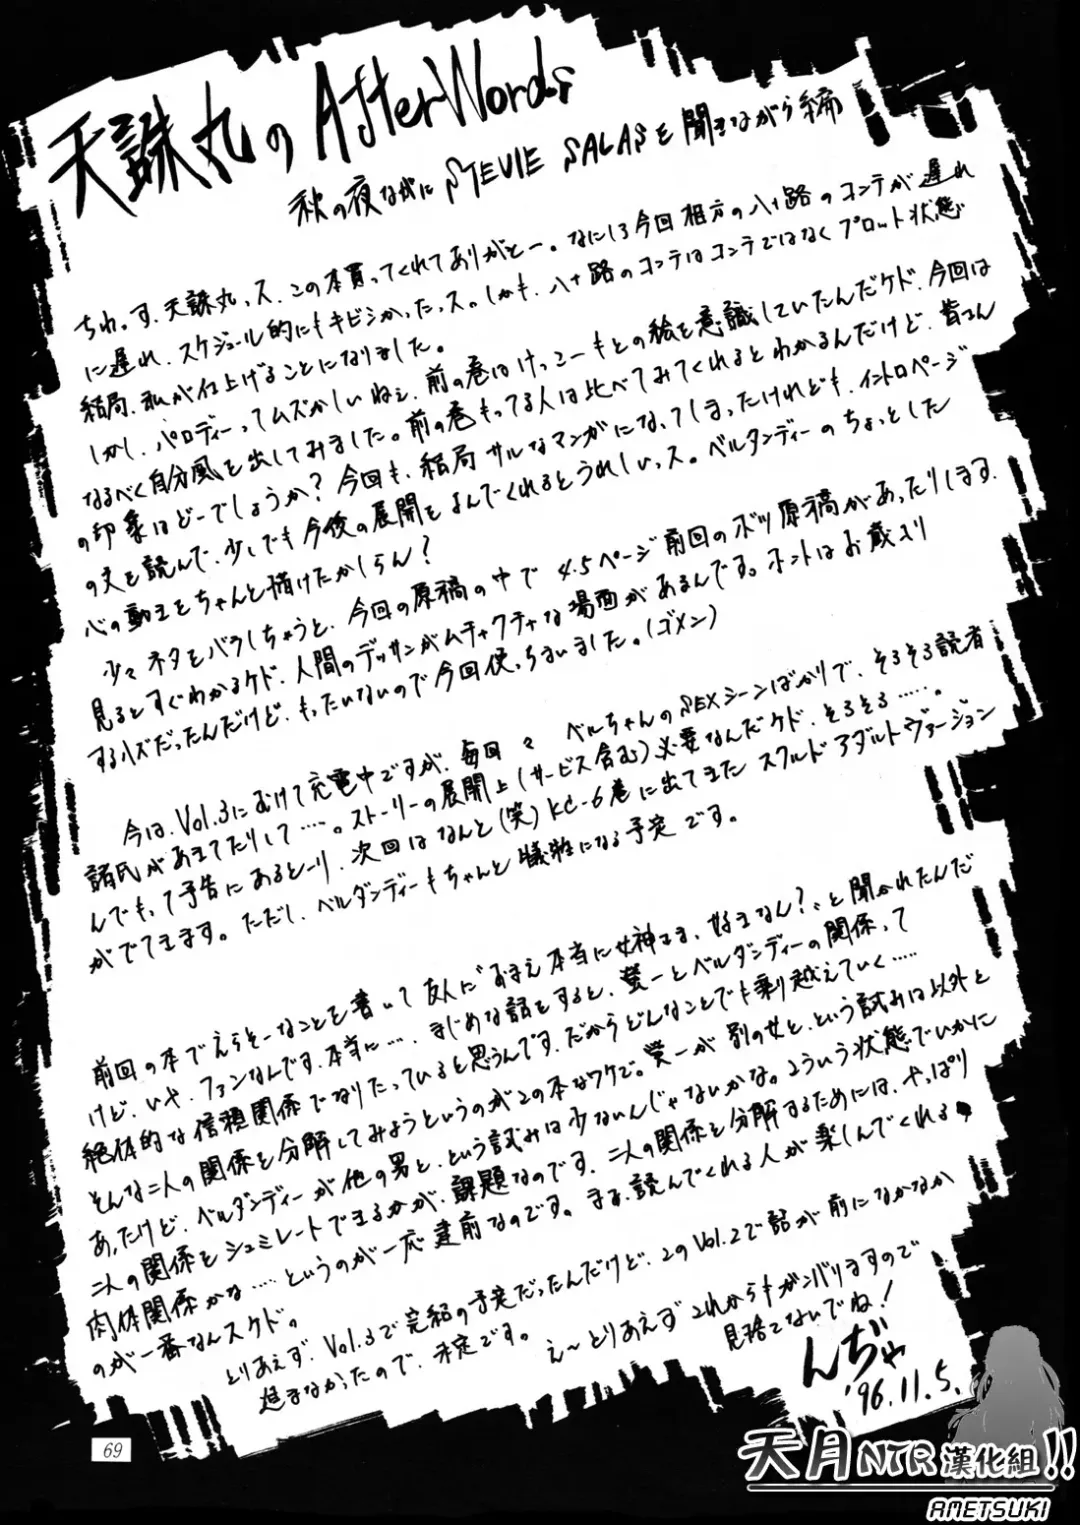 天誅丸の AfterWords
秋の夜ながに STEVIE SALASを聞きながら編
ちわっす、天誅丸っス、この本買ってくれてありがとー。なにしろ今回相方の八十路のコンテが遅れ
に遅れ、スケジュール的にもキビシかったっス。しかも、八十路のコンテはコンテではなくプロット状態
結局、私が仕上げることになりました。
しかし、パロディーってムズかしいねぇ、前の巻はけっこーもとの絵を意識していたんだケド、今回は
なるべく自分風を出してみました。前の巻もってる人は比べてみてくれるとわかるんだけど、皆さん
の印象はどーでしょうか？今回も、結局サルなマンガになってしまったけれども、イントロページ
の文を読んで、少しでも今後の展開をよんでくれるとうれしいっス。ベルダンディーのちょっとした
心の動きをちゃんと描けたかしらん？
少々ネタをバラしちゃうと、今回の原稿の中で 4.5ページ前回のボツ原稿があったりします。
見るとすぐわかるケド、人間のデッサンがムチャクチャな場面があるんです。ホントはお蔵入り
するハズだったんだけど、もったいないので今回使っちまいました。(ゴメン)
今は、Vol.3にむけて充電中ですが、毎回々 ベルちゃんのSEXシーンばかりで、そろそろ読者
諸氏があきてたりして‥‥。ストーリーの展開上(サービス含む)必要なんだケド、そろそろ‥‥。
んでもって予告にあるとーり、次回はなんと(笑)KC-6巻に出てきた スクルド アダルトヴァージョン
がでてきます。ただし、ベルダンディーもちゃんと犠牲になる予定です。
前回の本でえらそーなことを書いて友人に“おまえ本当に女神さま、好きなん？”と聞かれたんだ
けど、いや、ファンなんです、本当に‥‥。まじめな話をすると、螢一とベルダンディーの関係って
絶体的な信頼関係でなりたっていると思うんです、だからどんなことでも乗り越えていく‥‥
そんな二人の関係を分解してみようというのがこの本なワケで。螢一が別の女と、という試みは以外と
あったけど、ベルダンディーが他の男と、という試みは少ないんじゃないかな。こういう状態でいかに
二人の関係をシュミレートできるかが、課題なのです、二人の関係を分解するためには、やっぱり
肉体関係かな‥‥というのが一応建前なのです。まぁ、読んでくれる人が楽しんでくれる
のが一番なんスケド。
とりあえず、Vol.3で完結の予定だったんだけど、このVol.2で話が前になかなか
進まなかったので、未定です。
え〜とりあえずこれからもガンバリますので
見捨てないでね！
んぢゃ
'96.11.5.
69
天月NTR漢化組!!
AMETSUKI